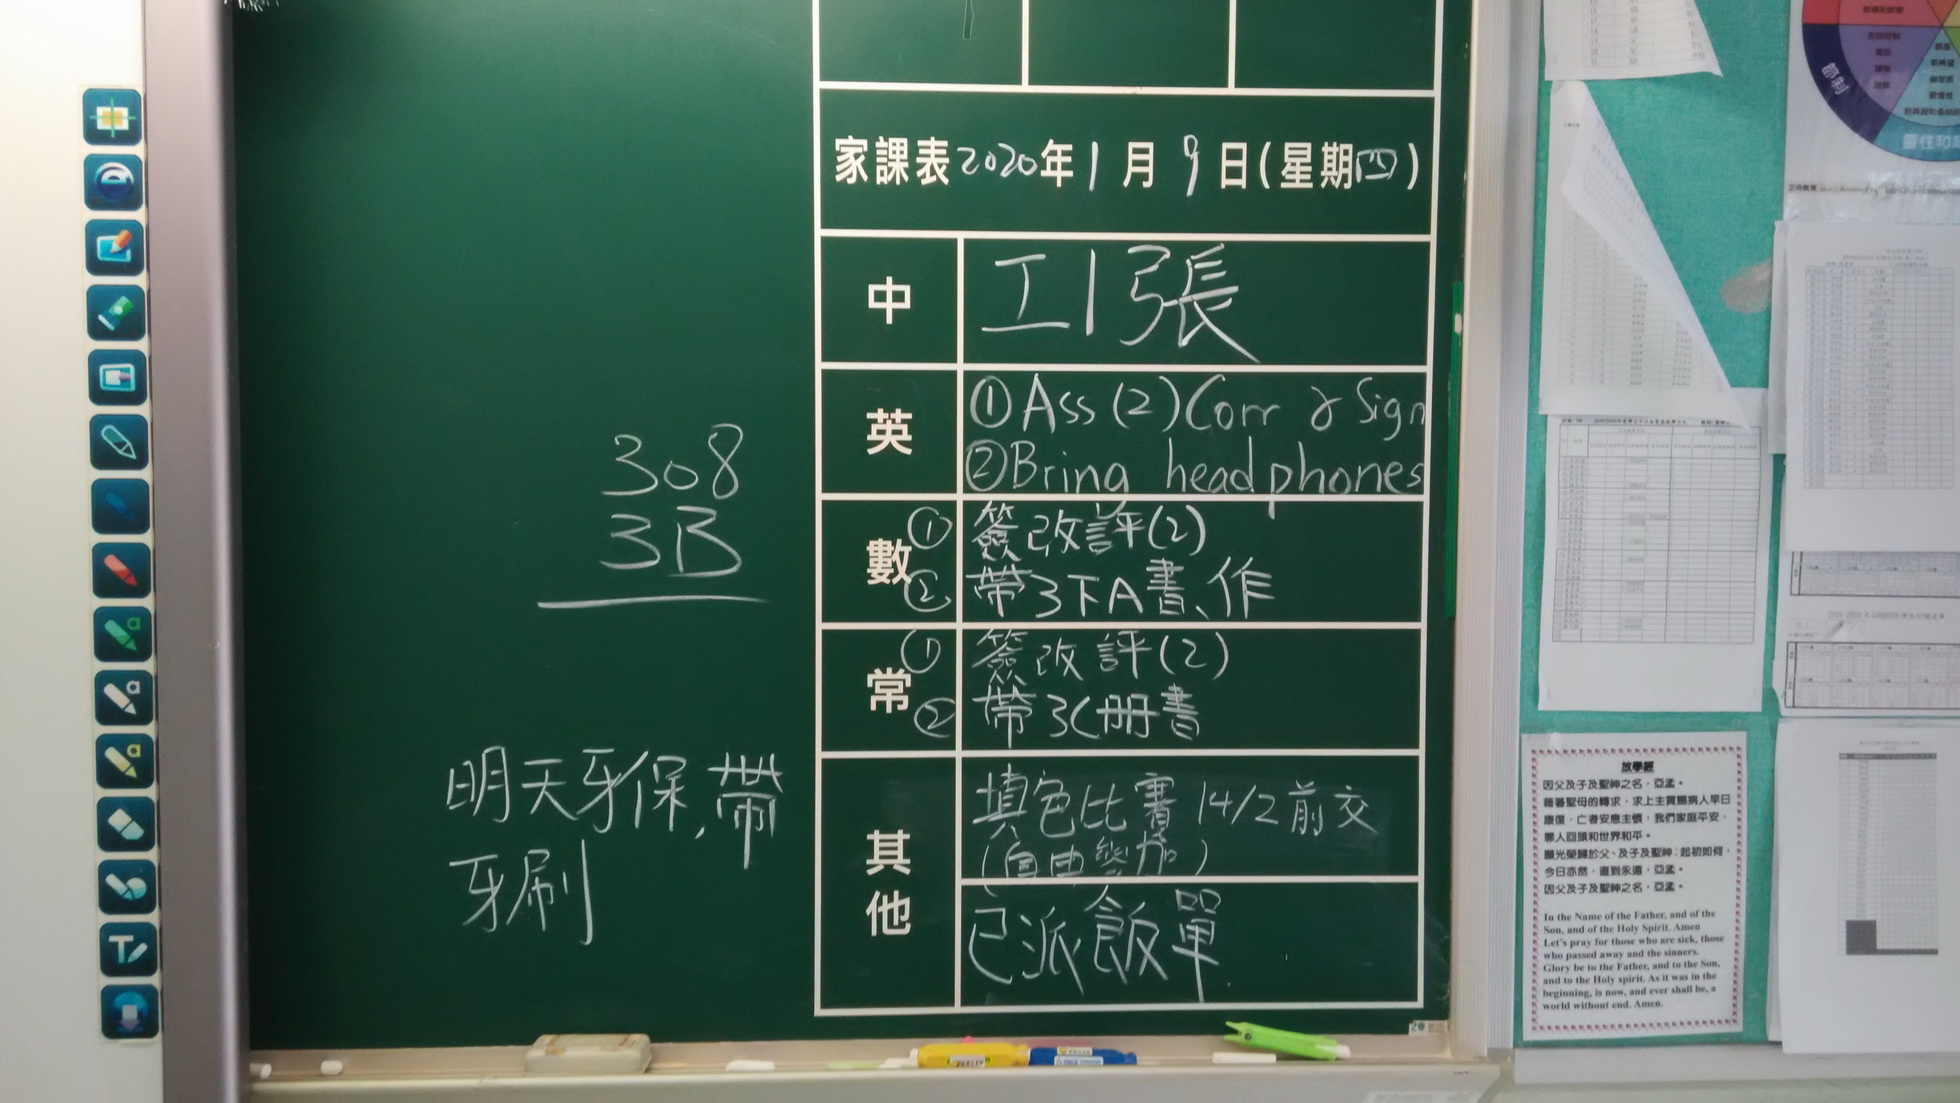 308
3B
明天牙保,帶
牙刷
家課表2020年1月9日(星期四)
中
工1張
英
①Ass(2)Corr & Sign
②Bring headphones
數
① 簽改評(2)
② 帶3下A書、作
常
① 簽改評(2)
② 帶3C冊書
其他
填色比賽14/2前交
(自由參加)
已派飯單
節制
靈性和
放學經
因父及子及聖神之名,亞孟。
藉著聖母的轉求,求上主賞賜病人早日
康復,亡者安息主懷,我們家庭平安,
罪人回頭和世界和平。
願光榮歸於父、及子及聖神;起初如何,
今日亦然,直到永遠,亞孟。
因父及子及聖神之名,亞孟。
In the Name of the Father, and of the
Son, and of the Holy Spirit. Amen
Let's pray for those who are sick, those
who passed away and the sinners.
Glory be to the Father, and to the Son,
and to the Holy spirit. As it was in the
beginning, is now, and ever shall be, a
world without end. Amen.